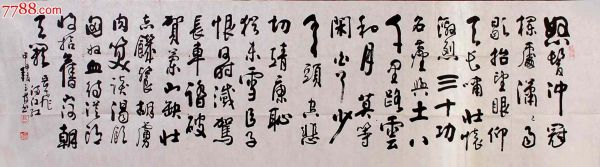 怒髮冲冠
憑闌處瀟瀟雨
歇抬望眼仰
天長嘯壯懷
激烈三十功
名塵與土八
千里路雲
和月莫等
閑白了少
年頭空悲
切靖康恥
猶未雪臣子
恨何時滅駕
長車踏破
賀蘭山缺壯
志饑餐胡虜
肉笑談渴飲
匈奴血待從頭
收拾舊山河朝
天闕 岳飛 滿江紅